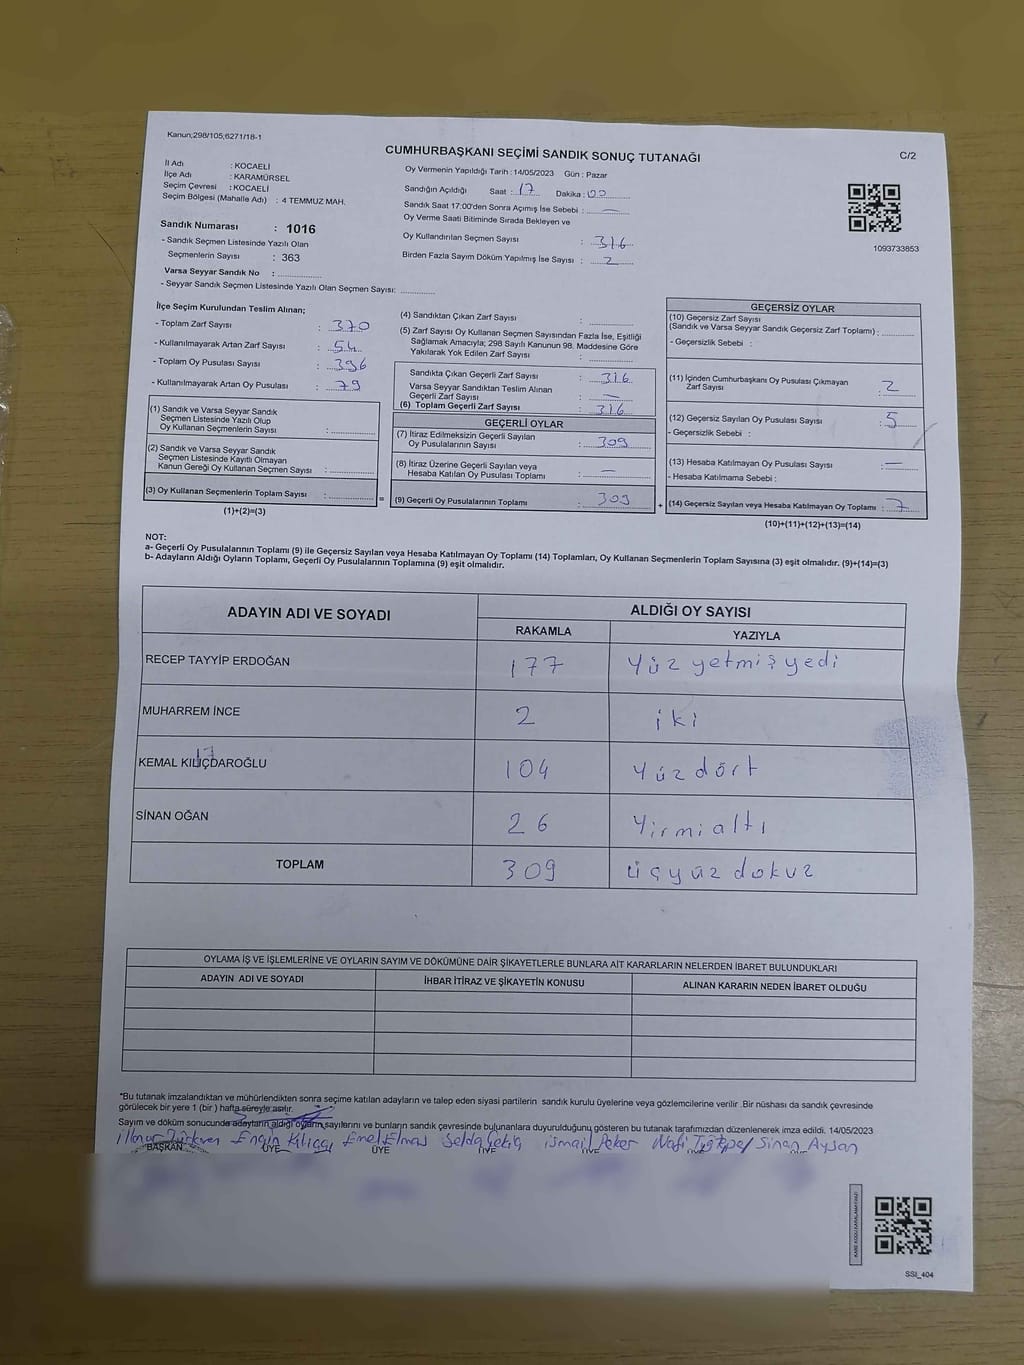 Kanun;298/105;6271/18-1
CUMHURBAŞKANI SEÇİMİ SANDIK SONUÇ TUTANAĞI
C/2
İl Adı : KOCAELİ
İlçe Adı : KARAMÜRSEL
Seçim Çevresi : KOCAELİ
Seçim Bölgesi (Mahalle Adı) : 4 TEMMUZ MAH.
Sandık Numarası : 1016
- Sandık Seçmen Listesinde Yazılı Olan
Seçmenlerin Sayısı : 363
Varsa Seyyar Sandık No :
- Seyyar Sandık Seçmen Listesinde Yazılı Olan Seçmen Sayısı:
Oy Vermenin Yapıldığı Tarih : 14/05/2023 Gün : Pazar
Sandığın Açıldığı Saat : 17 Dakika : 00
Sandık Saat 17:00'den Sonra Açımış İse Sebebi : —
Oy Verme Saati Bitiminde Sırada Bekleyen ve
Oy Kullandırılan Seçmen Sayısı : 316
Birden Fazla Sayım Döküm Yapılmış İse Sayısı : 2
1093733853
İlçe Seçim Kurulundan Teslim Alınan;
- Toplam Zarf Sayısı : 370
- Kullanılmayarak Artan Zarf Sayısı : 54
- Toplam Oy Pusulası Sayısı : 396
- Kullanılmayarak Artan Oy Pusulası : 79
(1) Sandık ve Varsa Seyyar Sandık
Seçmen Listesinde Yazılı Olup
Oy Kullanan Seçmenlerin Sayısı :
(2) Sandık ve Varsa Seyyar Sandık
Seçmen Listesinde Kayıtlı Olmayan
Kanun Gereği Oy Kullanan Seçmen Sayısı :
(3) Oy Kullanan Seçmenlerin Toplam Sayısı :
=
(1)+(2)=(3)
(4) Sandıktan Çıkan Zarf Sayısı :
(5) Zarf Sayısı Oy Kullanan Seçmen Sayısından Fazla İse, Eşitliği
Sağlamak Amacıyla; 298 Sayılı Kanunun 98. Maddesine Göre
Yakılarak Yok Edilen Zarf Sayısı :
Sandıkta Çıkan Geçerli Zarf Sayısı : 316
Varsa Seyyar Sandıktan Teslim Alınan
Geçerli Zarf Sayısı : —
(6) Toplam Geçerli Zarf Sayısı : 316
GEÇERLİ OYLAR
(7) İtiraz Edilmeksizin Geçerli Sayılan
Oy Pusulalarının Sayısı : 309
(8) İtiraz Üzerine Geçerli Sayılan veya
Hesaba Katılan Oy Pusulası Toplamı : —
(9) Geçerli Oy Pusulalarının Toplamı : 309
+
GEÇERSİZ OYLAR
(10) Geçersiz Zarf Sayısı
(Sandık ve Varsa Seyyar Sandık Geçersiz Zarf Toplamı) :
- Geçersizlik Sebebi :
(11) İçinden Cumhurbaşkanı Oy Pusulası Çıkmayan
Zarf Sayısı : 2
(12) Geçersiz Sayılan Oy Pusulası Sayısı : 5
- Geçersizlik Sebebi :
(13) Hesaba Katılmayan Oy Pusulası Sayısı : —
- Hesaba Katılmama Sebebi :
(14) Geçersiz Sayılan veya Hesaba Katılmayan Oy Toplamı : 7
(10)+(11)+(12)+(13)=(14)
NOT:
a- Geçerli Oy Pusulalarının Toplamı (9) ile Geçersiz Sayılan veya Hesaba Katılmayan Oy Toplamı (14) Toplamları, Oy Kullanan Seçmenlerin Toplam Sayısına (3) eşit olmalıdır. (9)+(14)=(3)
b- Adayların Aldığı Oyların Toplamı, Geçerli Oy Pusulalarının Toplamına (9) eşit olmalıdır.
ADAYIN ADI VE SOYADI ALDIĞI OY SAYISI
RAKAMLA YAZIYLA
RECEP TAYYİP ERDOĞAN 177 Yüz yetmiş yedi
MUHARREM İNCE 2 iki
KEMAL KILIÇDAROĞLU 104 Yüz dört
SİNAN OĞAN 26 Yirmi altı
TOPLAM 309 üçyüz dokuz
OYLAMA İŞ VE İŞLEMLERİNE VE OYLARIN SAYIM VE DÖKÜMÜNE DAİR ŞİKAYETLERLE BUNLARA AİT KARARLARIN NELERDEN İBARET BULUNDUKLARI
ADAYIN ADI VE SOYADI İHBAR İTİRAZ VE ŞİKAYETİN KONUSU ALINAN KARARIN NEDEN İBARET OLDUĞU
*Bu tutanak imzalandıktan ve mühürlendikten sonra seçime katılan adayların ve talep eden siyasi partilerin sandık kurulu üyelerine veya gözlemcilerine verilir .Bir nüshası da sandık çevresinde
görülecek bir yere 1 (bir ) hafta süreyle asılır.
Sayım ve döküm sonucunda adayların aldığı oyların sayılarını ve bunların sandık çevresinde bulunanlara duyurulduğunu gösteren bu tutanak tarafımızdan düzenlenerek imza edildi. 14/05/2023
Engin Kılıççı Emel Elmas Selda Çekiç ismail Peker Sinan Aysan
BAŞKAN ÜYE ÜYE ÜYE ÜYE
SSI_404